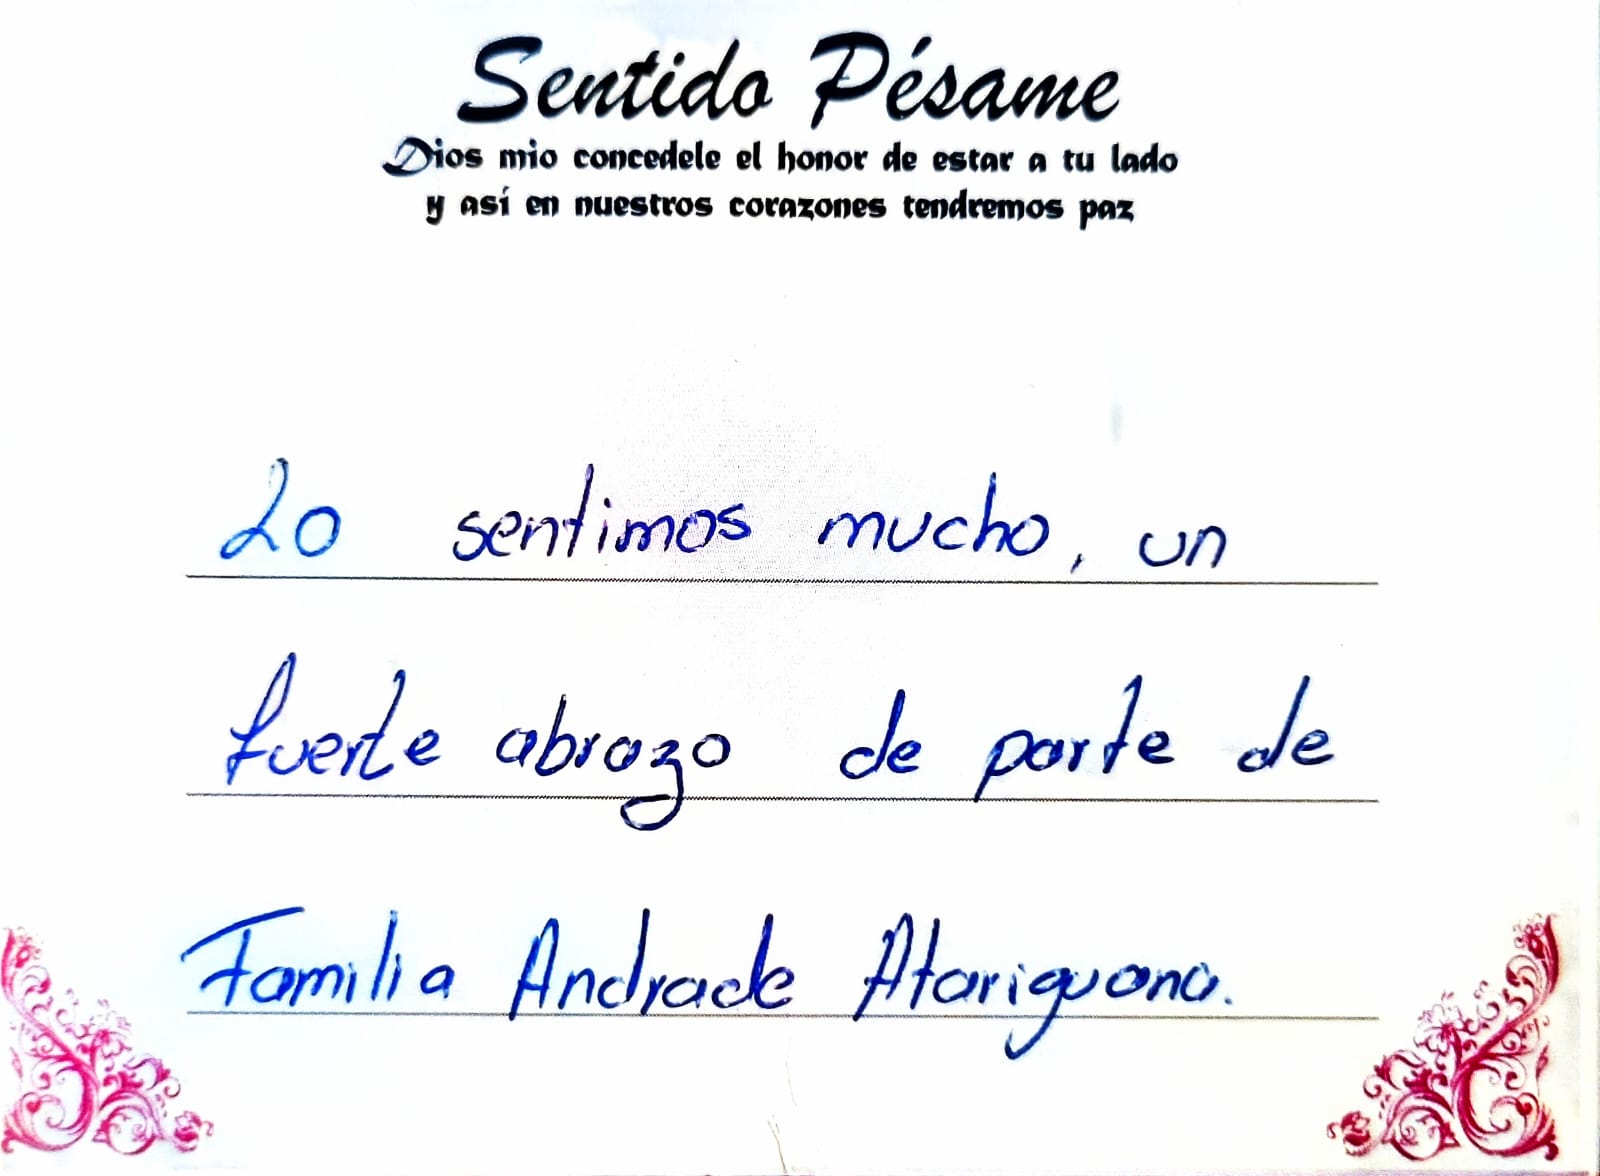 Sentido Pésame
Dios mio concedele el honor de estar a tu lado
y así en nuestros corazones tendremos paz
Lo sentimos mucho, un
fuerte abrazo de parte de
Familia Andrade Atariguana.